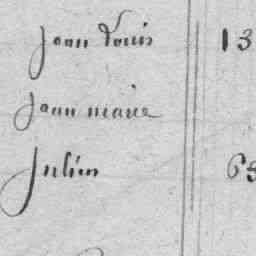 jean Louis 13
jean marie
Julien 65